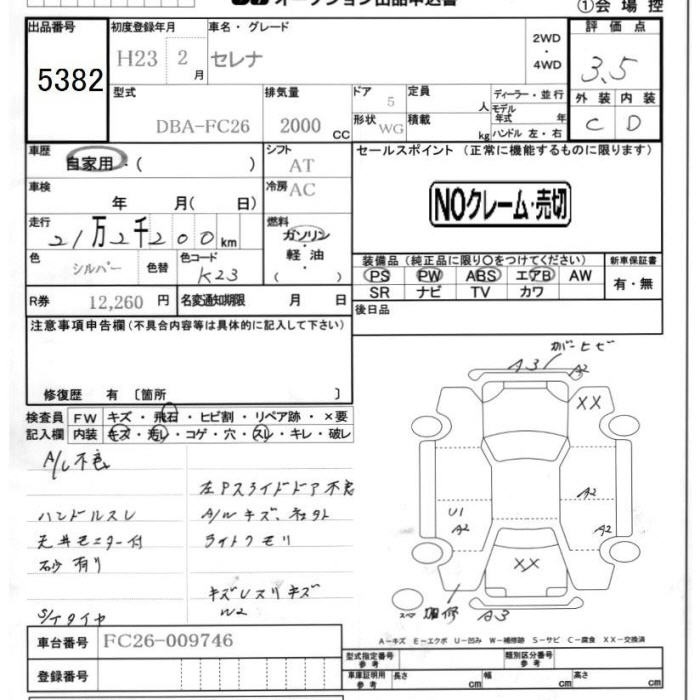 オークション出品申込書
①会場控
出品番号 初度登録年月 車名・グレード 2WD・4WD 評価点
5382 H23 2月 セレナ 3.5
型式 排気量 ドア 定員 ディーラー・並行 外装 内装
DBA-FC26 2000CC 5 人 モデル年式 年 C D
形状 WG 積載 kg ハンドル 左・右
車歴 自家用・( ) シフト AT セールスポイント (正常に機能するものに限ります)
車検 年 月( 日) 冷房 AC NOクレーム・売切
走行 21万2千200km 燃料 ガソリン・軽油 ( )
装備品 (純正品に限り○をつけてください) 新車保証書
色 シルバー 色替 色コード K23 PS PW ABS エアB AW 有・無
SR ナビ TV カワ
R券 12,260円 名変通知期限 月 日 後日品
注意事項申告欄(不具合内容等は具体的に記入して下さい)
修復歴 有 〔箇所 〕
検査員記入欄 FW キズ・飛石・ヒビ割・リペア跡・×要
内装 キズ・汚レ・コゲ・穴・スレ・キレ・破レ
A/C不良
左Pスライドドア不良
ハンドルスレ A/Wキズ、
天井モニター付 ライトクモリ
砂有り
キズ スリキズ
W2
S/タイヤ
カバーヒビ
A3 A2
XX
U1 A2
A2 A2
XX
補修 A3
A-キズ E-エクボ U-凹み W-補修跡 S-サビ C-腐食 XX-交換済
車台番号 FC26-009746
登録番号
型式指定番号 参考 類別区分番号 参考
車庫証明用 参考 長さ cm 幅 cm 高さ cm